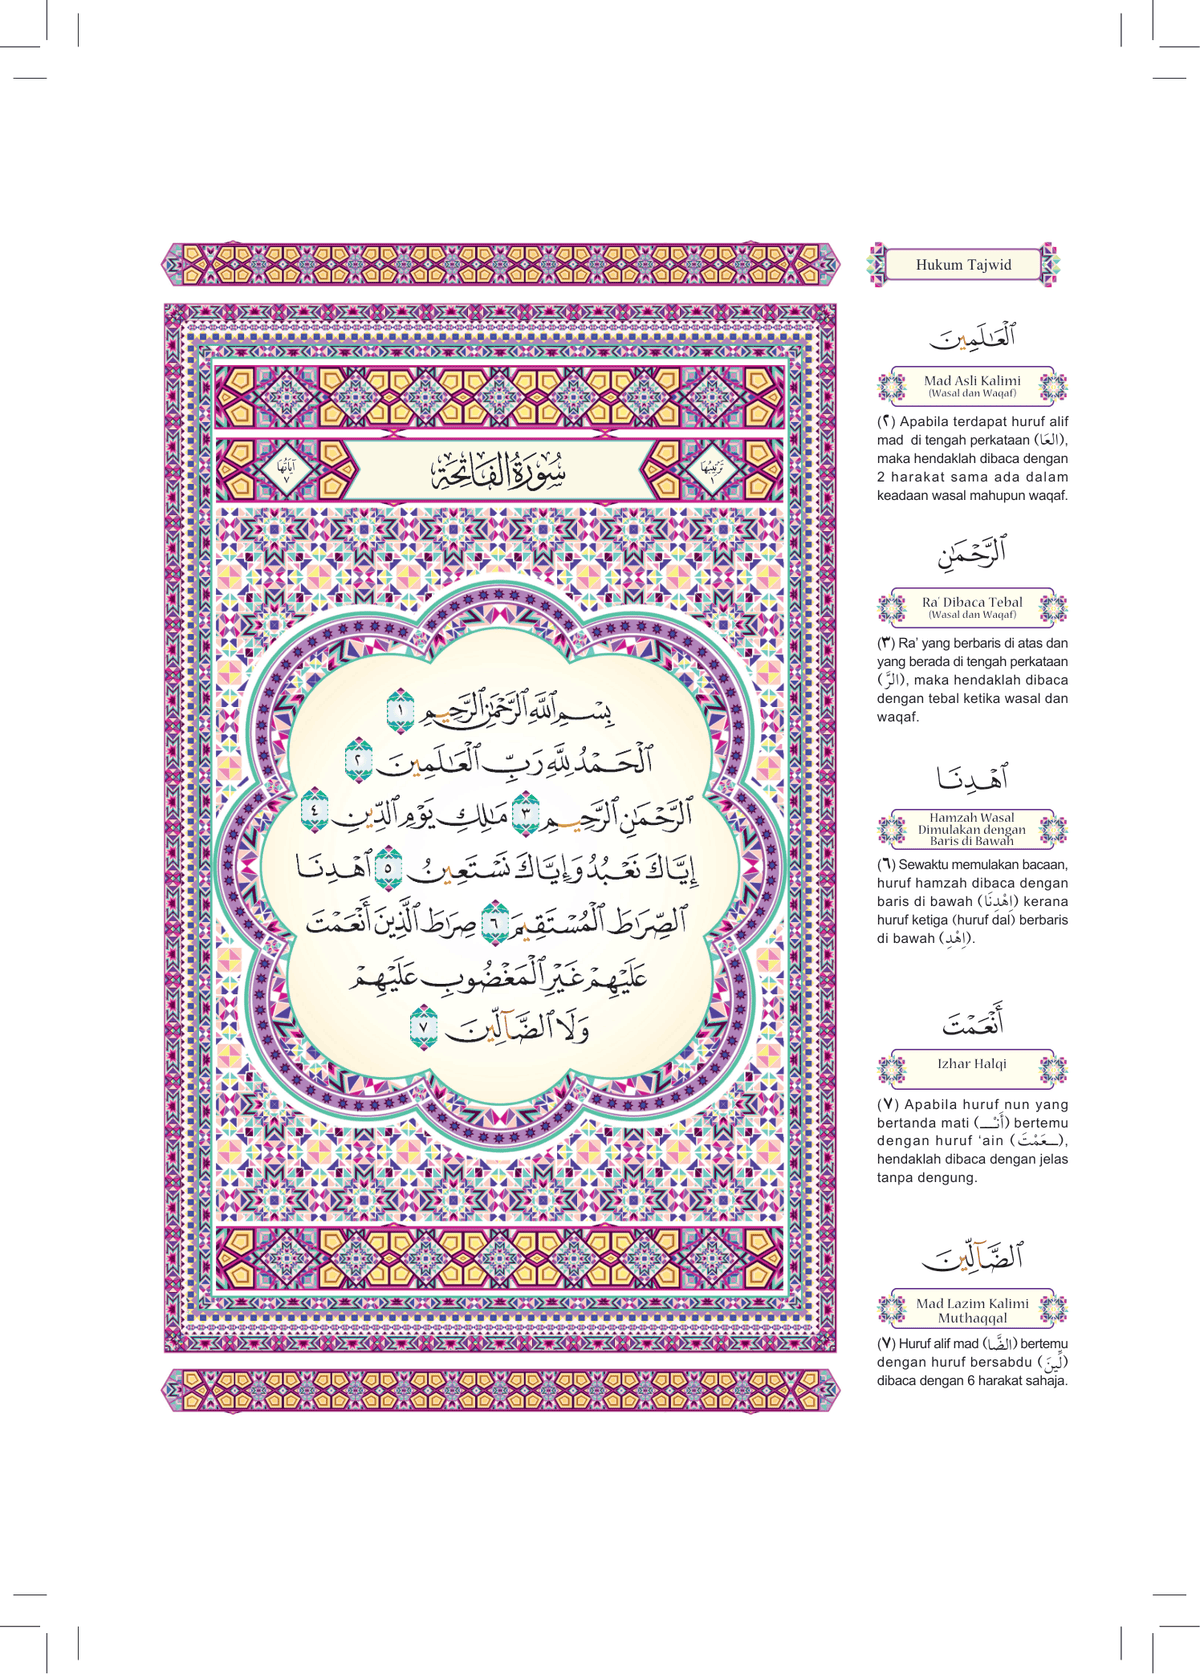 سُورَةُ الْفَاتِحَةِ
تَرْتِيْبُهَا
١
آيَاتُهَا
٧
بِسْمِ ٱللَّهِ ٱلرَّحْمَٰنِ ٱلرَّحِيمِ ١
ٱلْحَمْدُ لِلَّهِ رَبِّ ٱلْعَٰلَمِينَ ٢
ٱلرَّحْمَٰنِ ٱلرَّحِيمِ ٣ مَٰلِكِ يَوْمِ ٱلدِّينِ ٤
إِيَّاكَ نَعْبُدُ وَإِيَّاكَ نَسْتَعِينُ ٥ ٱهْدِنَا
ٱلصِّرَٰطَ ٱلْمُسْتَقِيمَ ٦ صِرَٰطَ ٱلَّذِينَ أَنْعَمْتَ
عَلَيْهِمْ غَيْرِ ٱلْمَغْضُوبِ عَلَيْهِمْ
وَلَا ٱلضَّآلِّينَ ٧
Hukum Tajwid
ٱلْعَٰلَمِينَ
Mad Asli Kalimi
(Wasal dan Waqaf)
(٢) Apabila terdapat huruf alif
mad di tengah perkataan (العَا),
maka hendaklah dibaca dengan
2 harakat sama ada dalam
keadaan wasal mahupun waqaf.
ٱلرَّحْمَٰنِ
Ra' Dibaca Tebal
(Wasal dan Waqaf)
(٣) Ra' yang berbaris di atas dan
yang berada di tengah perkataan
(الرَّ), maka hendaklah dibaca
dengan tebal ketika wasal dan
waqaf.
ٱهْدِنَا
Hamzah Wasal
Dimulakan dengan
Baris di Bawah
(٦) Sewaktu memulakan bacaan,
huruf hamzah dibaca dengan
baris di bawah (اِهْدِنَا) kerana
huruf ketiga (huruf dal) berbaris
di bawah (اِهْدِ).
أَنْعَمْتَ
Izhar Halqi
(٧) Apabila huruf nun yang
bertanda mati (أَنْـــ) bertemu
dengan huruf 'ain (ـــعَمْتَ),
hendaklah dibaca dengan jelas
tanpa dengung.
ٱلضَّآلِّينَ
Mad Lazim Kalimi
Muthaqqal
(٧) Huruf alif mad (الضَّا) bertemu
dengan huruf bersabdu (لِّينَ)
dibaca dengan 6 harakat sahaja.